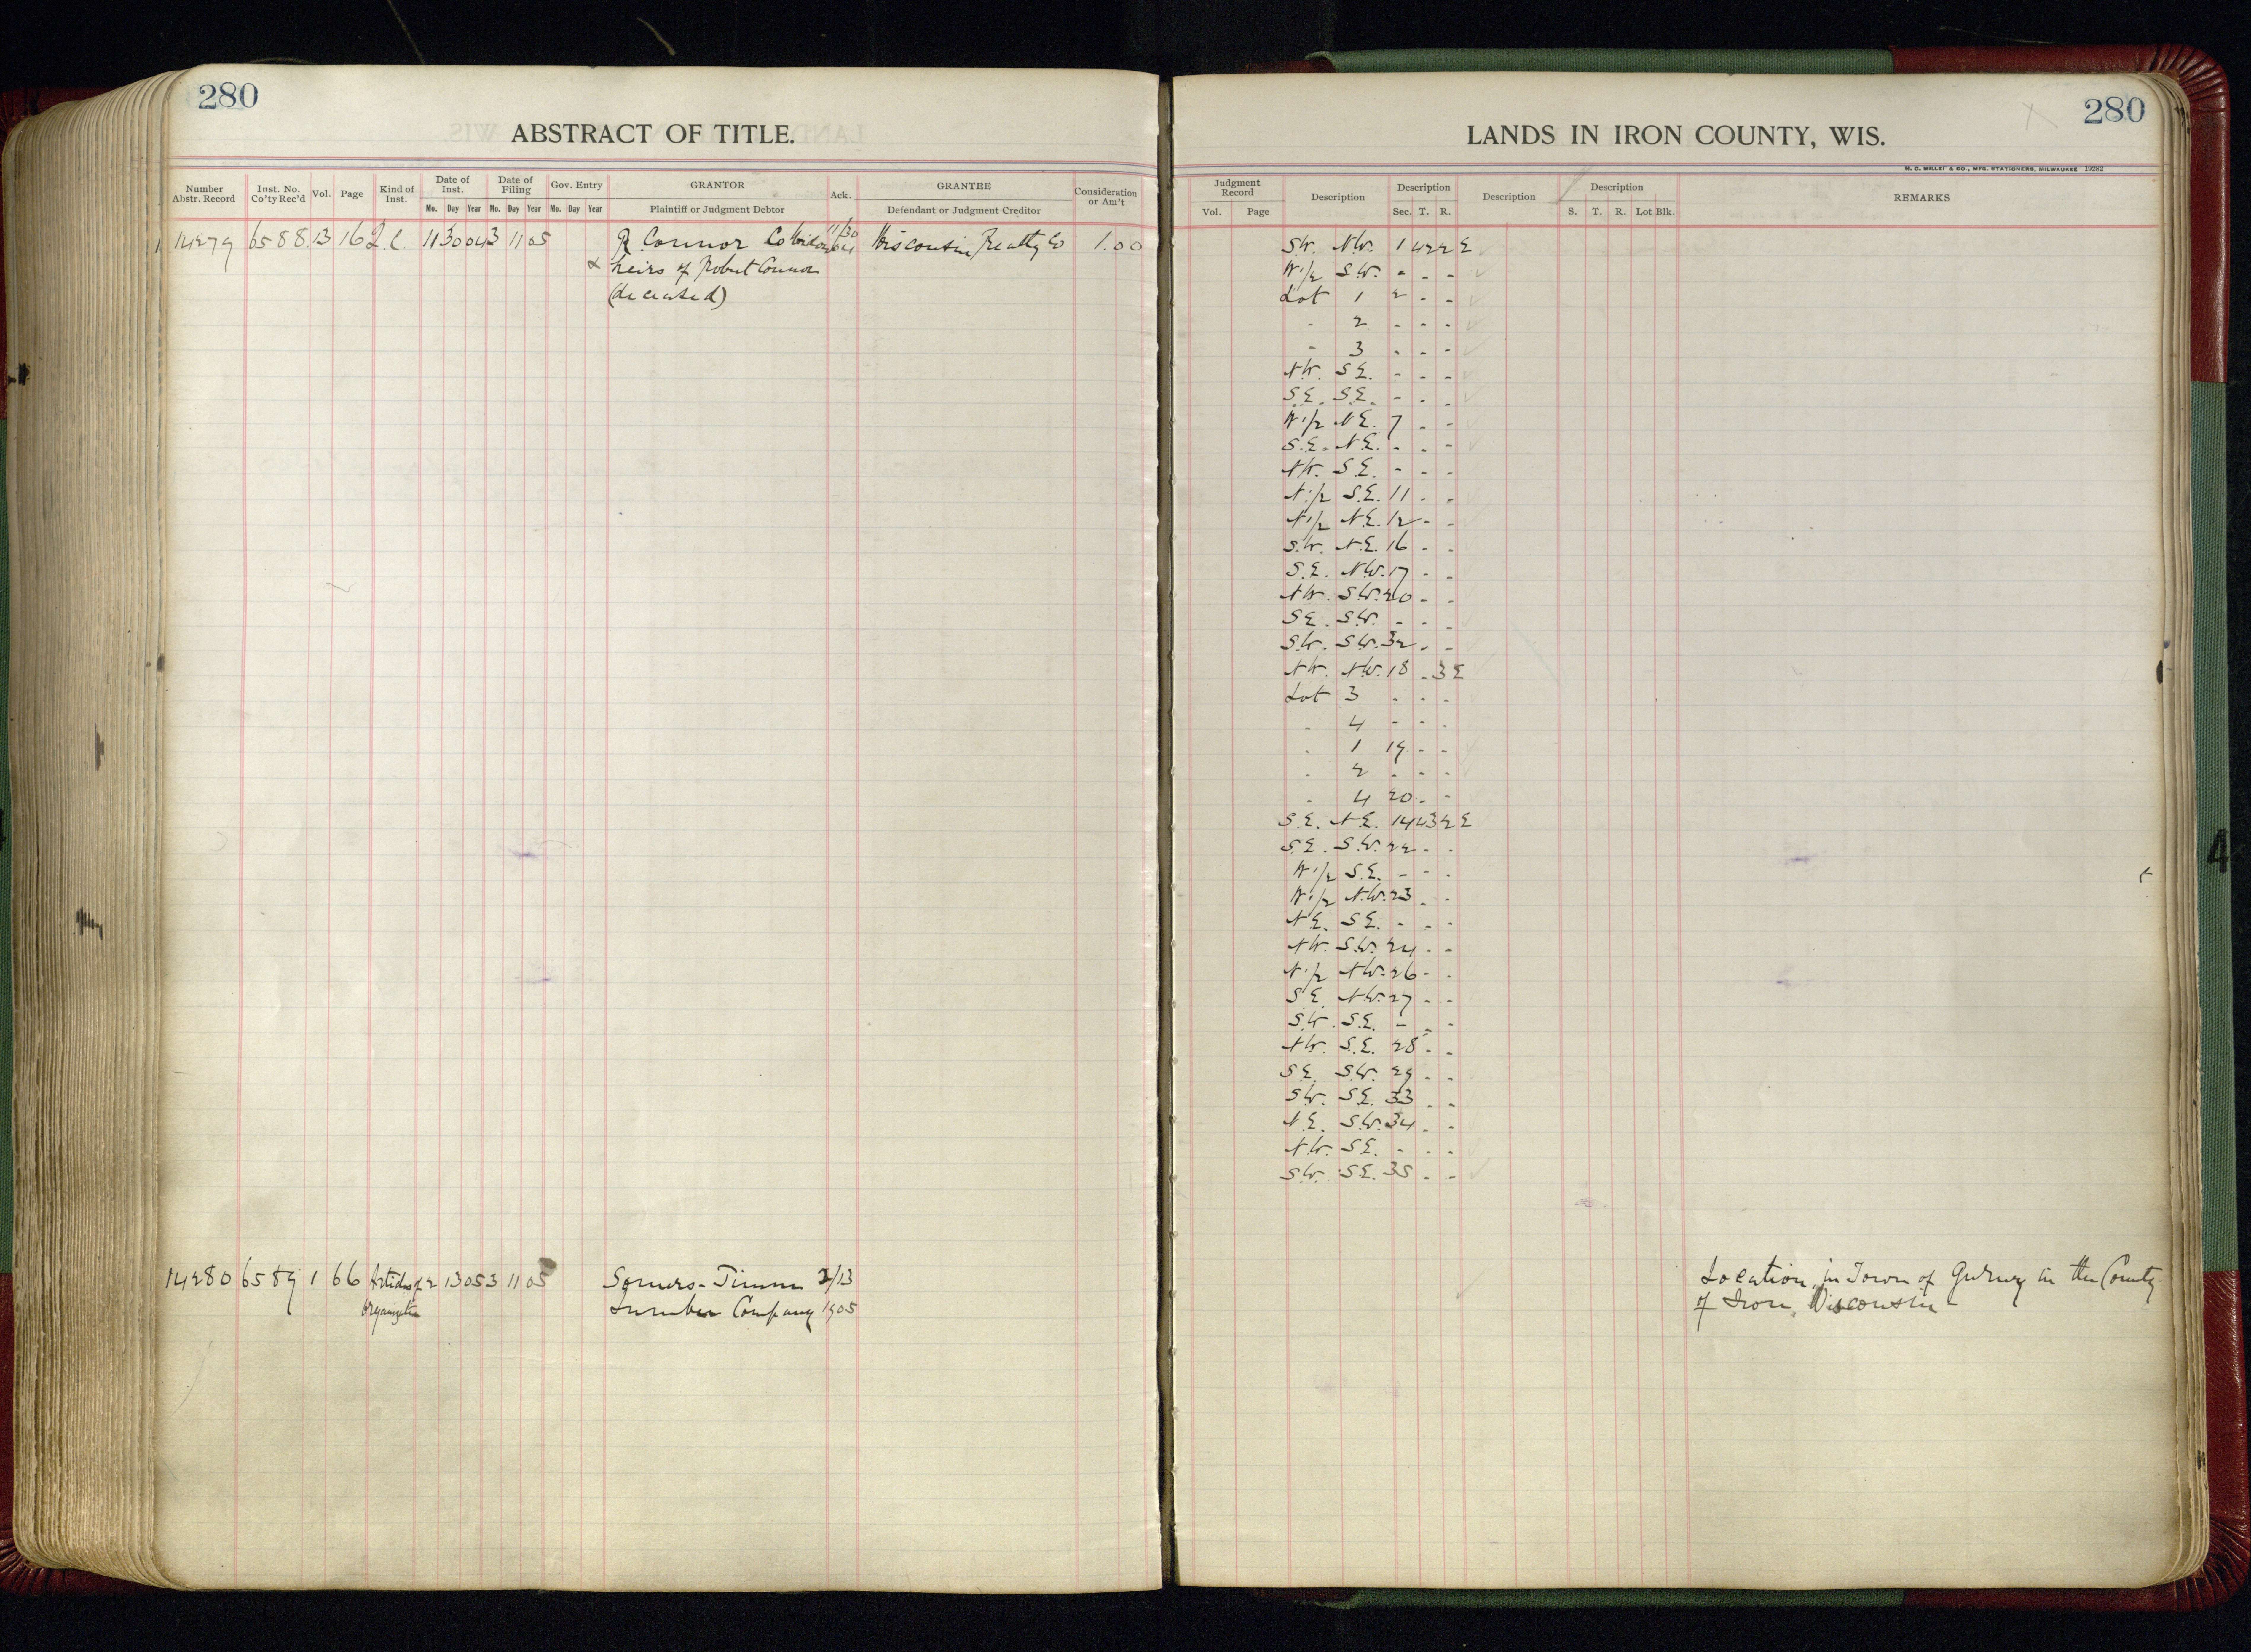 280
ABSTRACT OF TITLE.
Number Abstr. Record | Inst. No. Co'ty Rec'd | Vol. | Page | Kind of Inst. | Date of Inst. Mo. Day Year | Date of Filing Mo. Day Year | Gov. Entry Mo. Day Year | GRANTOR Plaintiff or Judgment Debtor | Ack. | GRANTEE Defendant or Judgment Creditor | Consideration or Am't
14279 6588 13 162 11 30 04 3 11 05 R Connor Co 11/30 04 Wisconsin Realty Co 1.00
heirs of Robert Connor
(deceased)
14280 6589 1 66 Articles of 2 13 05 3 11 05 Somers-Timm 2/13
Organization Lumber Company 1905
280
LANDS IN IRON COUNTY, WIS.
H. C. MILLER & CO., MFG. STATIONERS, MILWAUKEE 19282
Judgment Record Vol. Page | Description | Description Sec. T. R. | Description | Description S. T. R. Lot Blk. | REMARKS
S.W. N.W. 1 42 2 E
W 1/2 S.W. - - -
Lot 1 2 - -
- 2 - - -
- 3 - - -
N.W. S.E. - - -
S.E. S.E. - - -
W 1/2 N.E. 7 - -
S.E. N.E. - - -
N.W. S.E. - - -
N 1/2 S.E. 11 - -
N 1/2 N.E. 12 - -
S.W. N.E. 16 - -
S.E. N.W. 17 - -
N.W. S.W. 20 - -
S.E. S.W. - - -
S.W. S.W. 32 - -
N.W. N.W. 18 - 3 E
Lot 3 - - -
- 4 - - -
- 1 19 - -
- 2 - - -
- 4 20 - -
S.E. N.E. 14 43 2 E
S.E. S.W. 22 - -
W 1/2 S.E. - - -
W 1/2 N.W. 23 - -
N.E. S.E. - - -
N.W. S.W. 24 - -
N 1/2 N.W. 26 - -
S.E. N.W. 27 - -
S.W. S.E. - - -
N.W. S.E. 28 - -
S.E. S.W. 29 - -
S.W. S.E. 33 - -
N.E. S.W. 34 - -
N.W. S.E. - - -
S.W. S.E. 35 - -
Location in Town of Gurney in the County
of Iron, Wisconsin